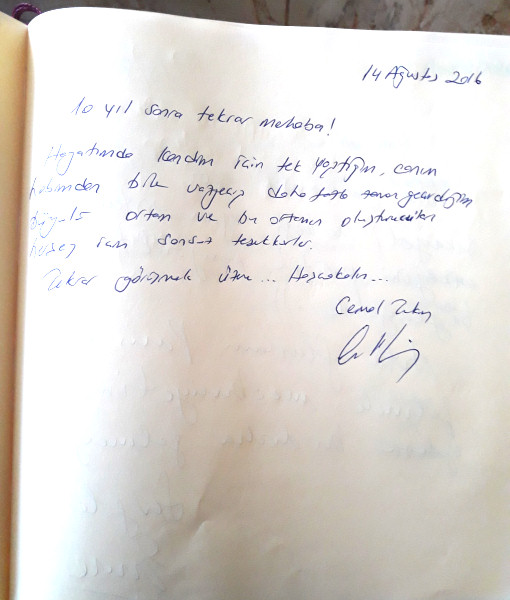 14 Ağustos 2016
10 yıl sonra tekrar merhaba!
Hayatımda kendim için tek yaptığım, canım
bile vazgeçip daha fazla zaman geçirdiğim
ortam ve bu ortamın oluşturucuları
herkes için sonsuz teşekkürler.
Tekrar görüşmek üzere... Hoşçakalın...
Cemal